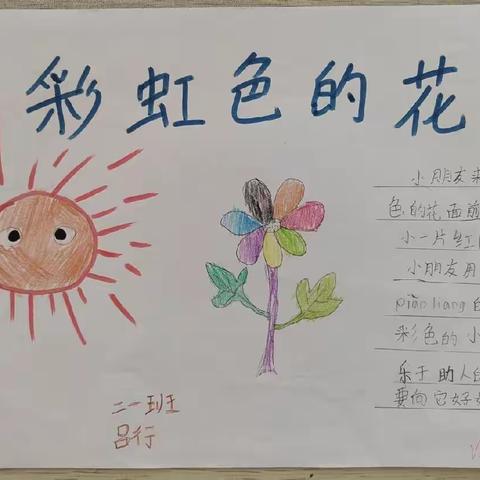 彩虹色的花
小朋友来
色的花面前
小一片红
小朋友用
piào liang 的
彩色的小
乐于助人的
要向它好好
二一班
吕行